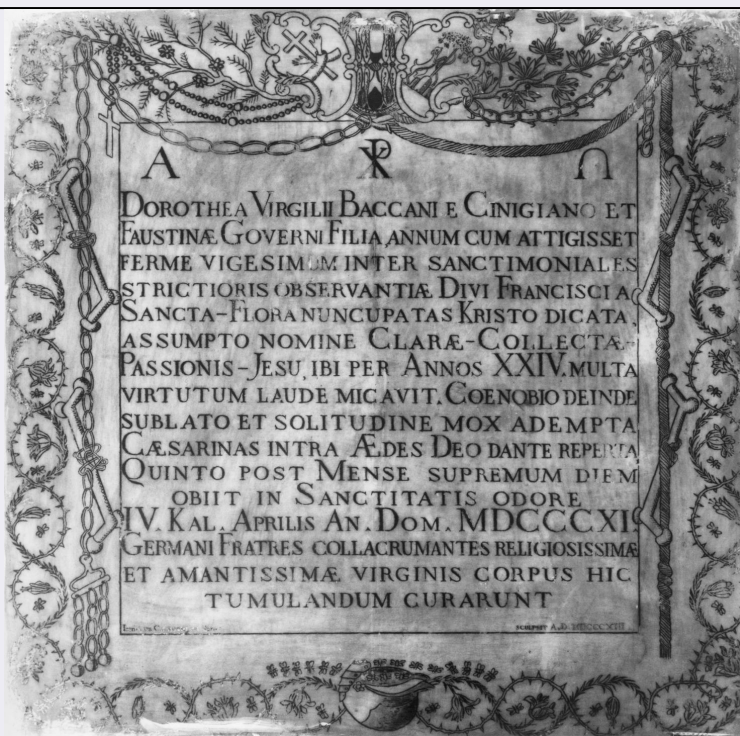 A ☧ Ω
DOROTHEA VIRGILII BACCANI E CINIGIANO ET
FAUSTINÆ GOVERNI FILIA, ANNUM CUM ATTIGISSET
FERME VIGESIMUM INTER SANCTIMONIALES
STRICTIORIS OBSERVANTIÆ DIVI FRANCISCI A
SANCTA-FLORA NUNCUPATAS KRISTO DICATA,
ASSUMPTO NOMINE CLARÆ-COLLECTÆ-
PASSIONIS-JESU, IBI PER ANNOS XXIV. MULTA
VIRTUTUM LAUDE MICAVIT. COENOBIO DEINDE
SUBLATO ET SOLITUDINE MOX ADEMPTA
CÆSARINAS INTRA ÆDES DEO DANTE REPERTA
QUINTO POST MENSE SUPREMUM DIEM
OBIIT IN SANCTITATIS ODORE
IV. KAL. APRILIS AN. DOM. MDCCCXI
GERMANI FRATRES COLLACRUMANTES RELIGIOSISSIMÆ
ET AMANTISSIMÆ VIRGINIS CORPUS HIC
TUMULANDUM CURARUNT
SCULPSIT A.D. MDCCCXIII